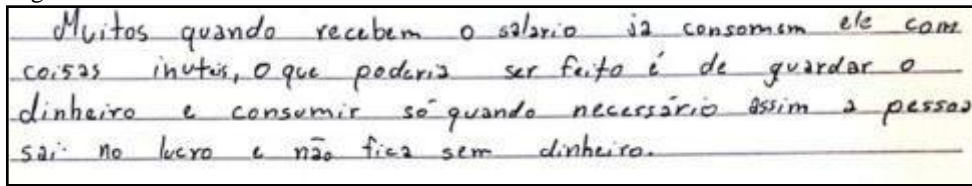 Muitos quando recebem o salario ja consomem ele com
coisas inuteis, o que poderia ser feito é de guardar o
dinheiro e consumir só quando necessário assim a pessoa
sai no lucro e não fica sem dinheiro.